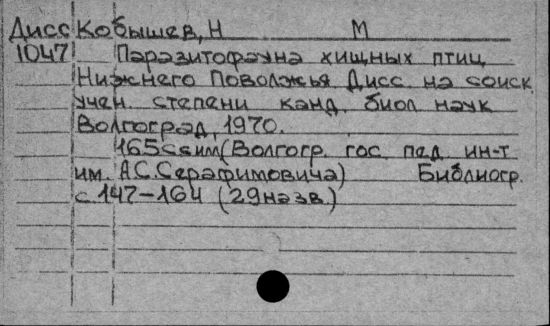 Дисс Кобышев, Н М
1047 Паразитофауна хищных птиц
Нижнего Поволжья Дисс. на соиск
учен. степени канд. биол наук
Волгоград, 1970.
165с ил (Волгогр. гос. пед. ин-т
им. А.С.Серафимовича) Библиогр.
с.147-164 (29 назв.)